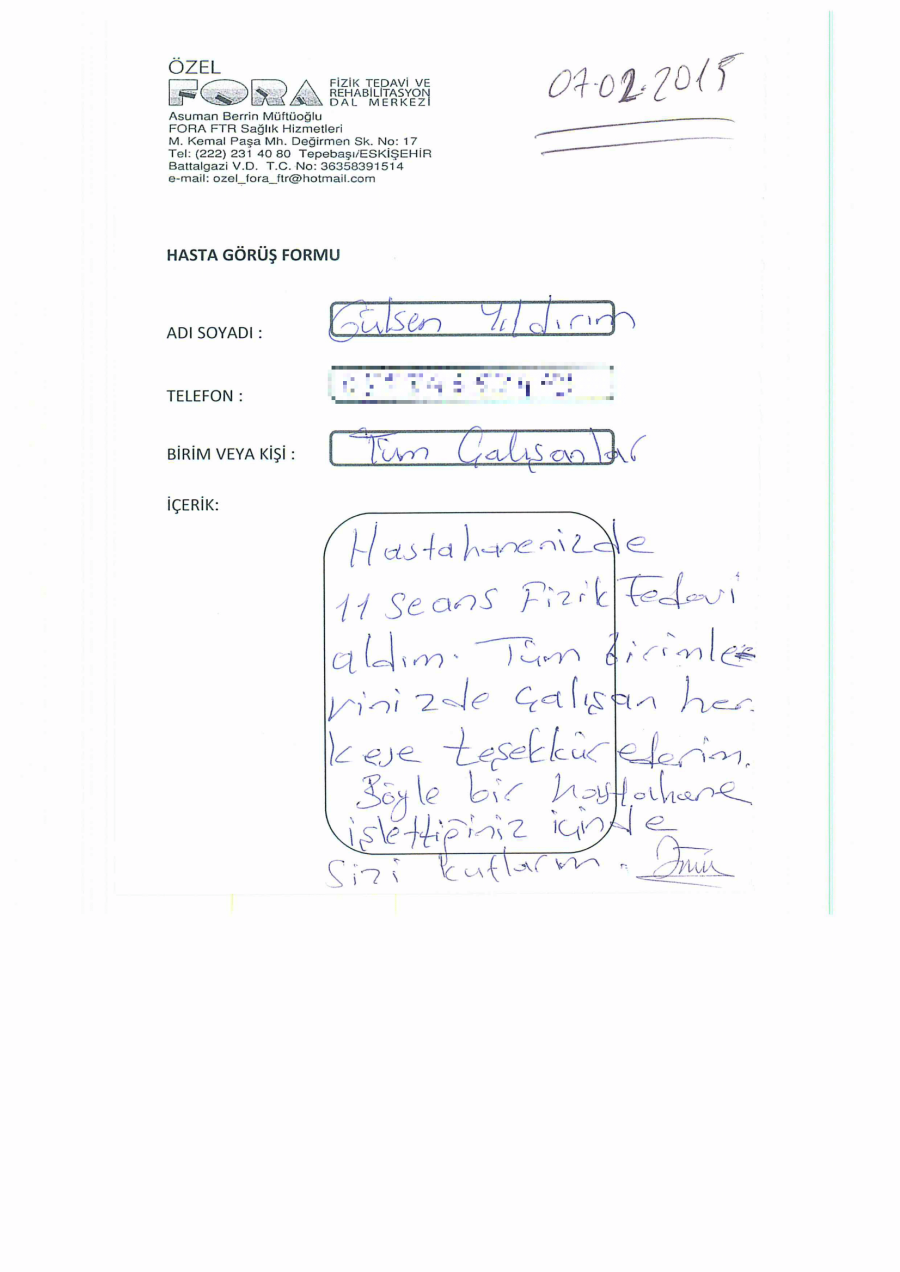 ÖZEL
FORA FİZİK TEDAVİ VE
REHABILITASYON
DAL MERKEZİ
Asuman Berrin Müftüoğlu
FORA FTR Sağlık Hizmetleri
M. Kemal Paşa Mh. Değirmen Sk. No: 17
Tel: (222) 231 40 80 Tepebaşı/ESKİŞEHİR
Battalgazi V.D. T.C. No: 36358391514
e-mail: ozel_fora_ftr@hotmail.com
07.02.2015
HASTA GÖRÜŞ FORMU
ADI SOYADI : Gülsen Yıldırım
TELEFON :
BİRİM VEYA KİŞİ : Tüm Çalışanlar
İÇERİK:
Hastahanenizde
11 seans Fizik Tedavi
aldım. Tüm birimle
rinizde çalışan her
kese teşekkür ederim.
Böyle bir hastahane
işlettiğiniz içinde
sizi kutlarım.